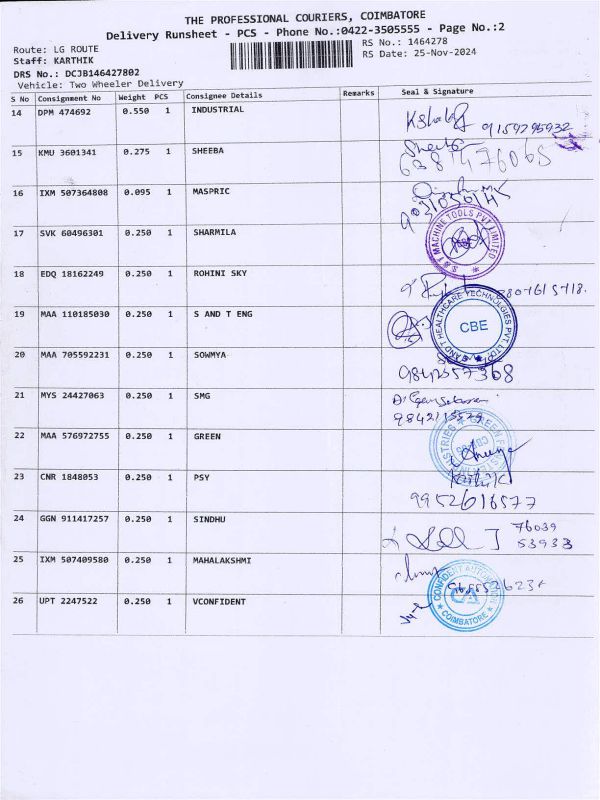 THE PROFESSIONAL COURIERS, COIMBATORE
Delivery Runsheet - PCS - Phone No.:0422-3505555 - Page No.:2
Route: LG ROUTE
RS No.: 1464278
Staff: KARTHIK
RS Date: 25-Nov-2024
DRS No.: DCJB146427802
Vehicle: Two Wheeler Delivery
S No Consignment No Weight PCS Consignee Details Remarks Seal & Signature
14 DPM 474692 0.550 1 INDUSTRIAL
15 KMU 3601341 0.275 1 SHEEBA
16 IXM 507364808 0.095 1 MASPRIC
17 SVK 60496301 0.250 1 SHARMILA
S&T MACHINE TOOLS PVT LIMITED
18 EDQ 18162249 0.250 1 ROHINI SKY
19 MAA 110185030 0.250 1 S AND T ENG
S AND T HEALTHCARE TECHNOLOGIES PVT. LTD.
CBE
20 MAA 705592231 0.250 1 SOWMYA
9842557368
21 MYS 24427063 0.250 1 SMG
22 MAA 576972755 0.250 1 GREEN
23 CNR 1848053 0.250 1 PSY
9952616577
24 GGN 911417257 0.250 1 SINDHU
76039
53933
25 IXM 507409580 0.250 1 MAHALAKSHMI
26 UPT 2247522 0.250 1 VCONFIDENT
CONFIDENT AUTOMATION
CA
COIMBATORE